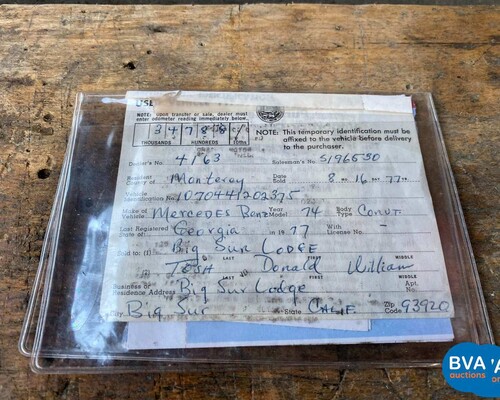 USE
NOTE: Upon transfer or sale, dealer must
enter odometer reading immediately below.
3 4 7 8 8
THOUSANDS HUNDREDS
NOTE: This temporary identification must be
affixed to the vehicle before delivery
to the purchaser.
Dealer's No. 4163 Salesman's No. S196550
Resident County of Monterey Date Sold 8-16-77
Vehicle Identification No. 1070441202375
Make of Vehicle Mercedes Benz Year Model 74 Body Type Convt
Last Registered State of: Georgia in 1977 With License No. -
Sold to: (1) Big Sur Lodge
LAST FIRST MIDDLE
Tosh Donald William
LAST FIRST MIDDLE
Business or Residence Address Big Sur Lodge Apt. No.
City Big Sur State Calif. Zip Code 93920
BVA
auctions